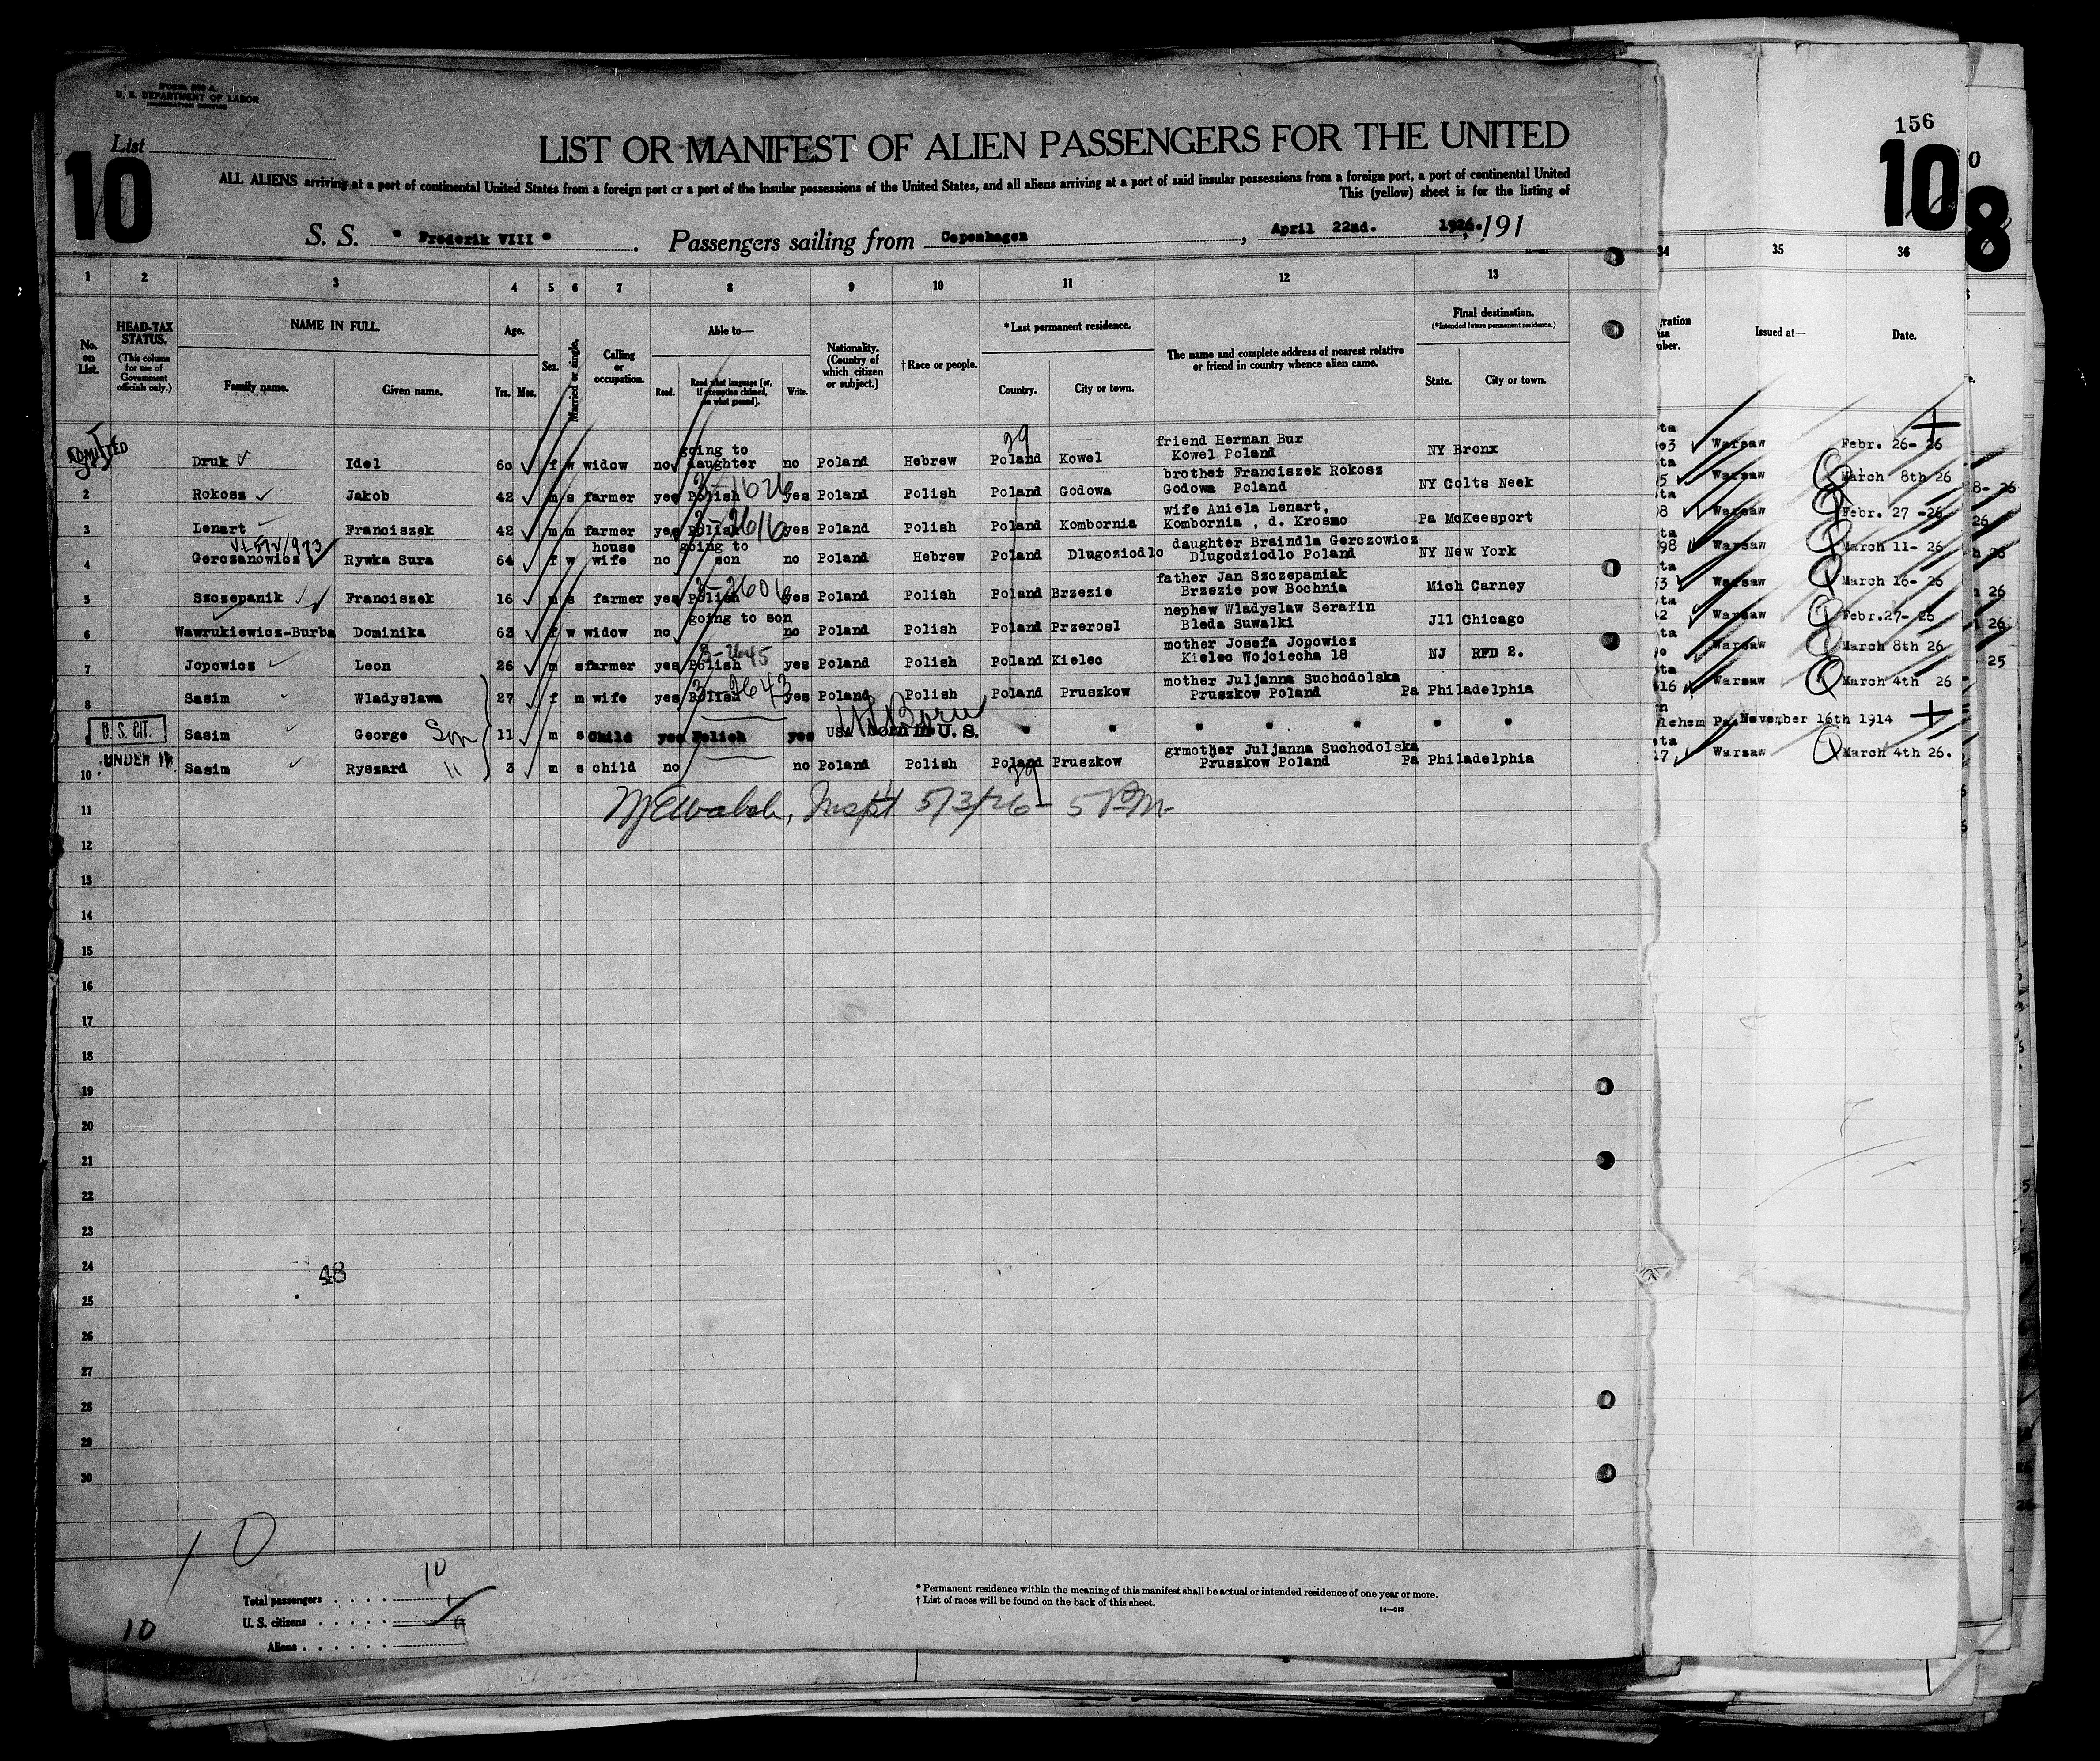 Form 500 A
U. S. DEPARTMENT OF LABOR
IMMIGRATION SERVICE
List
10
LIST OR MANIFEST OF ALIEN PASSENGERS FOR THE UNITED
ALL ALIENS arriving at a port of continental United States from a foreign port or a port of the insular possessions of the United States, and all aliens arriving at a port of said insular possessions from a foreign port, a port of continental United
This (yellow) sheet is for the listing of
S. S. " Frederik VIII " . Passengers sailing from Copenhagen , April 22nd. 1926. , 191
156
10
8
1 2 3 4 5 6 7 8 9 10 11 12 13 34 35 36
No. on List.
HEAD-TAX STATUS.
(This column for use of Government officials only.)
NAME IN FULL.
Family name. Given name.
Age.
Yrs. Mos.
Sex.
Married or single.
Calling or occupation.
Able to—
Read. Read what language [or, if exemption claimed, on what ground]. Write.
Nationality. (Country of which citizen or subject.)
†Race or people.
*Last permanent residence.
Country. City or town.
The name and complete address of nearest relative or friend in country whence alien came.
Final destination.
(*Intended future permanent residence.)
State. City or town.
Issued at—
Date.
ADMITTED
Druk Idel 60 f w widow no going to daughter no Poland Hebrew Poland Kowel friend Herman Bur Kowel Poland NY Bronx Warsaw Febr. 26- 26
2 Rokosz Jakob 42 m s farmer yes Polish yes Poland Polish Poland Godowa brother Franciszek Rokosz Godowa Poland NY Colts Neek Warsaw March 8th 26
3 Lenart Franciszek 42 m m farmer yes Polish yes Poland Polish Poland Kombornia wife Aniela Lenart, Kombornia , d. Krosno Pa McKeesport Warsaw Febr. 27 -26
4 Gerczanowicz Rywka Sura 64 f w house wife no going to son no Poland Hebrew Poland Dlugoziodlo daughter Braindla Gerczowicz Dlugodziodlo Poland NY New York 98 Warsaw March 11- 26
5 Szczepanik Franciszek 16 m s farmer yes Polish yes Poland Polish Poland Brzezie father Jan Szczepamiak Brzezie pow Bochnia Mich Carney Warsaw March 16- 26
6 Wawrukiewicz-Burba Dominika 63 f w widow no going to son no Poland Polish Poland Przerosl nephew Wladyslaw Serafin Bleda Suwalki Jll Chicago Warsaw Febr.27- 26
7 Jopowicz Leon 26 m s farmer yes Polish 3-2645 yes Poland Polish Poland Kielec mother Josefa Jopowicz Kielec Wojciecha 18 NJ RFD 2. Warsaw March 8th 26
8 Sasim Wladyslawa 27 f m wife yes Polish 3-2643 yes Poland Polish Poland Pruszkow mother Juljanna Suchodolska Pruszkow Poland Pa Philadelphia 16 Warsaw March 4th 26
U. S. CIT. Sasim George Son 11 m s Child yes Polish yes USA Born in U. S. " " " " " " lehem Pa November 16th 1914
UNDER 16
10 Sasim Ryszard " 3 m s child no no Poland Polish Poland Pruszkow grmother Juljanna Suchodolska Pruszkow Poland Pa Philadelphia 17 Warsaw March 4th 26.
MEWalsh, Inspt 5/3/26 - 5 P.M.
11
12
13
14
15
16
17
18
19
20
21
22
23
24
48
25
26
27
28
29
30
10
10
Total passengers
U. S. citizens
Aliens
10
* Permanent residence within the meaning of this manifest shall be actual or intended residence of one year or more.
† List of races will be found on the back of this sheet.